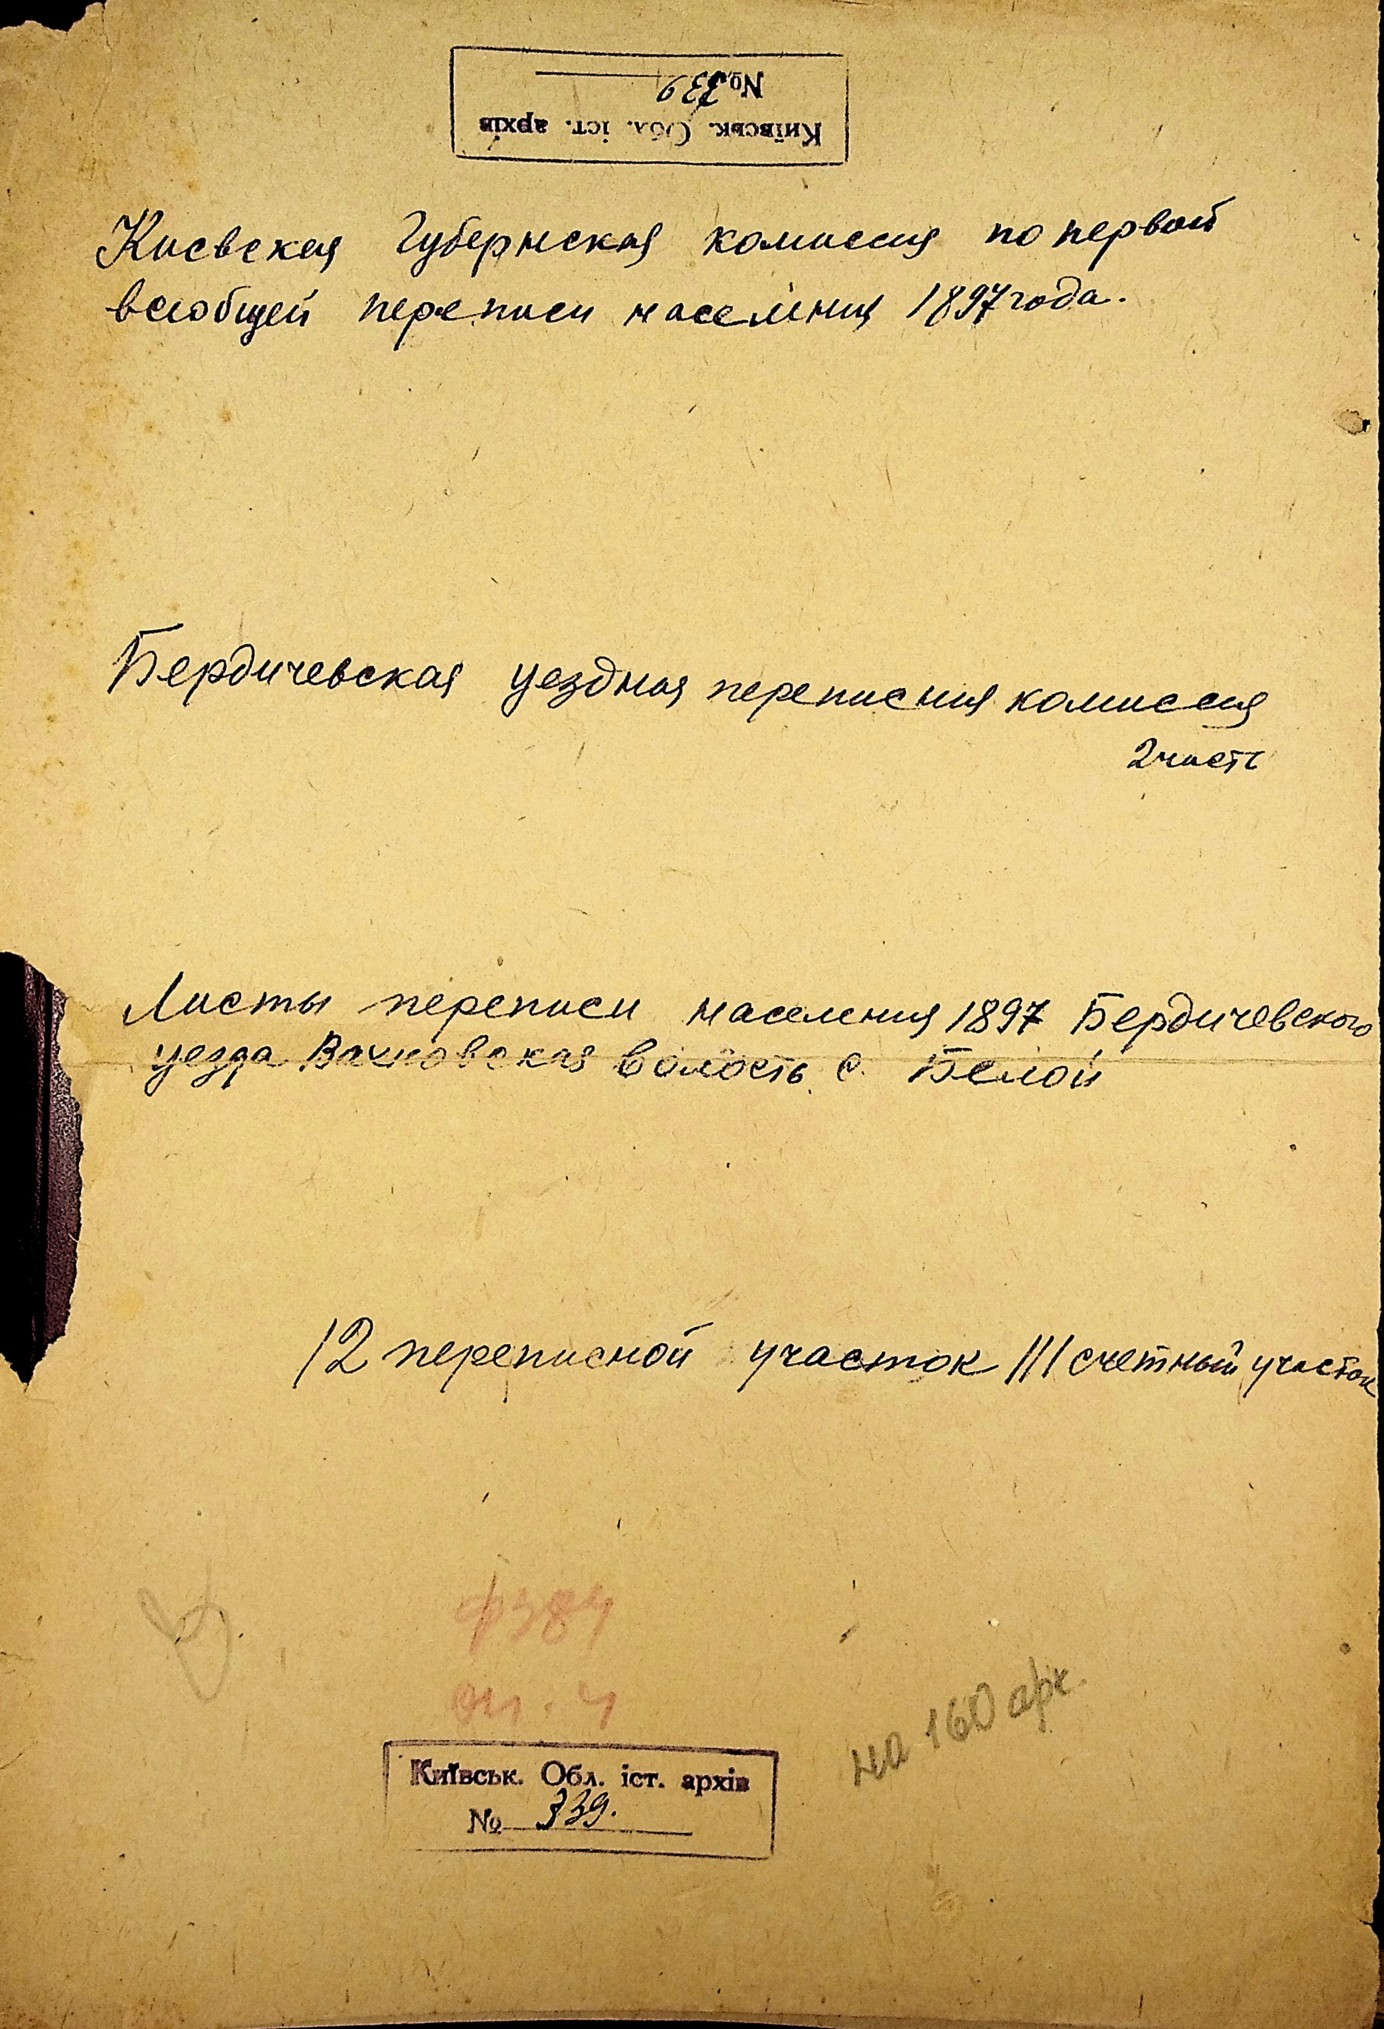 Київськ. Обл. іст. архів
№ 339
Киевская Губернская комиссия по первой
всеобщей переписи населения 1897 года.
Бердичевская уездная переписная комиссия
2 часть
Листы переписи населения 1897 Бердичевского
уезда Вахновская волость с. Белой
12 переписной участок III счетный участок
ф 384
оп. 4
на 160 арк.
Київськ. Обл. іст. архів
№ 339.